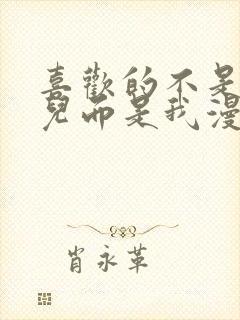 喜歡的不是
兒而是我漫
肖永革